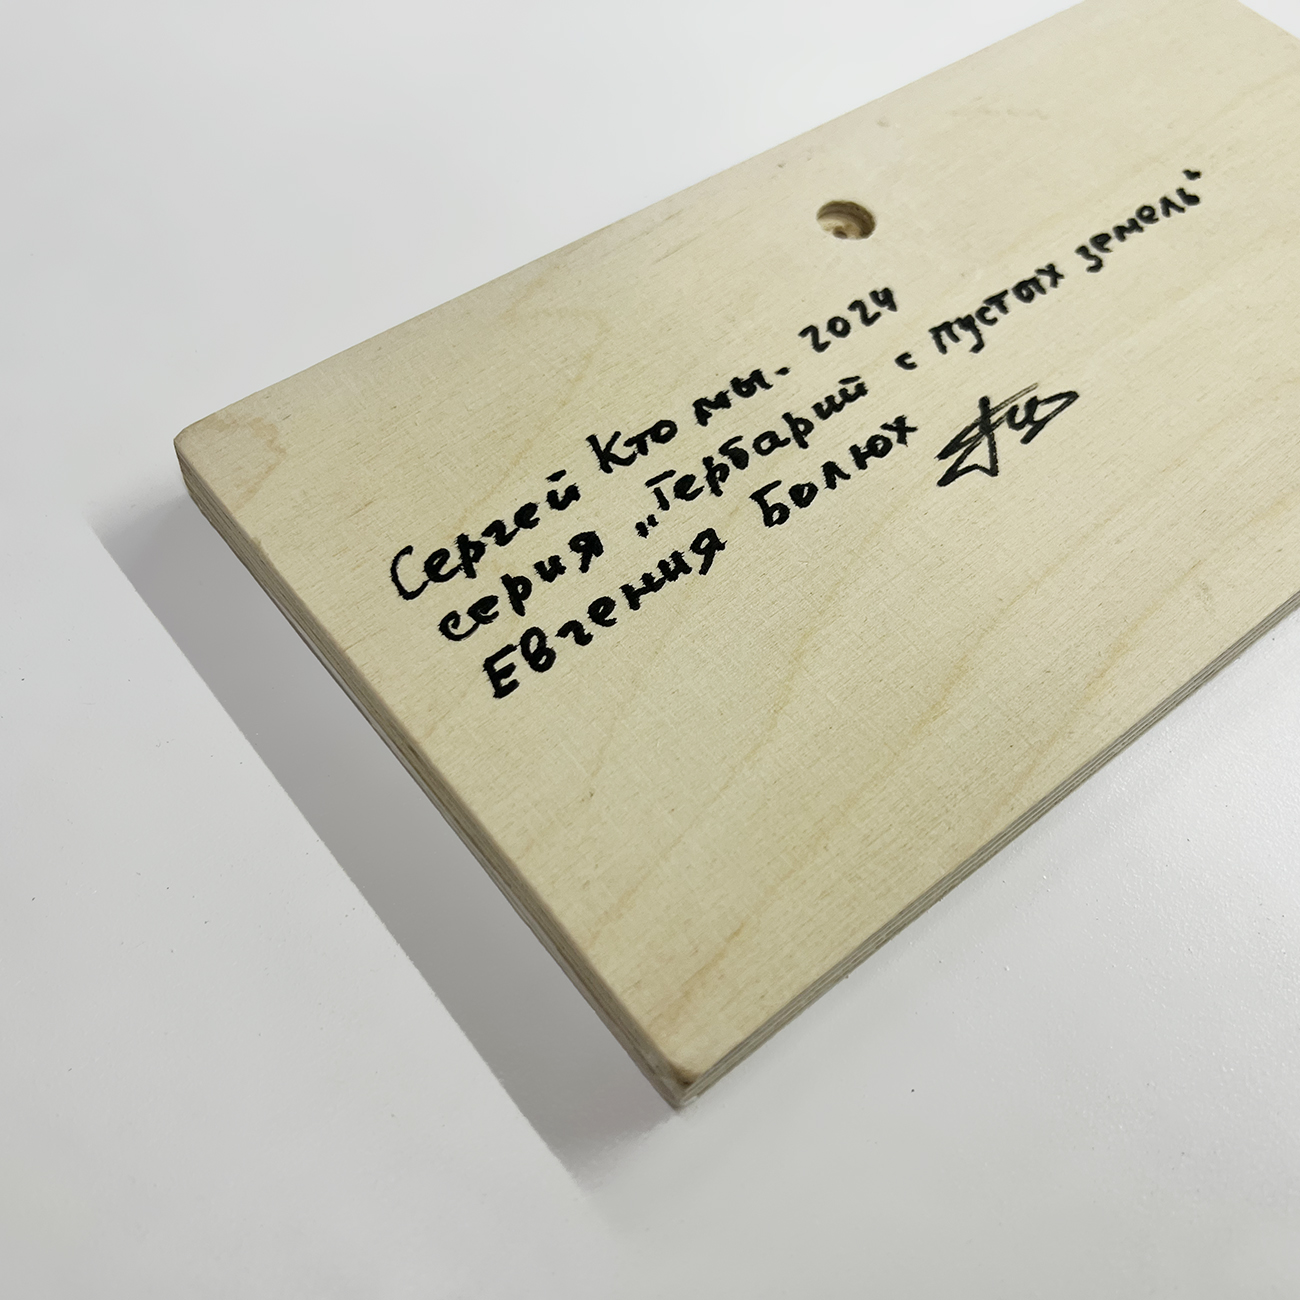 Сергей Кто мы. 2024
серия „Гербарий с пустых земель“
Евгения Болюх